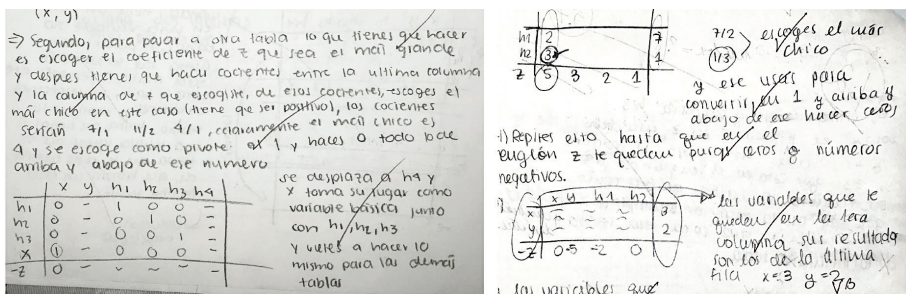 (x, y)
⇒ Segundo, para pasar a otra tabla lo que tienes que hacer
es escoger el coeficiente de z que sea el mas grande
y despues tienes que hacer cocientes entre la ultima columna
y la columna de z que escogiste, de esos cocientes, escoges el
más chico en este caso (tiene que ser positivo), los cocientes
serían 7/1 11/2 4/1, claramente el más chico es
4 y se escoge como pivote 1 y haces 0 todo lo de
arriba y abajo de ese numero
x y h1 h2 h3 h4
h1 0 - 1 0 0 -
h2 0 - 0 1 0 -
h3 0 - 0 0 1 -
x 1 - 0 0 0 -
-z 0 - ~ ~ ~ -
se desplaza a h4 y
x toma su lugar como
variable básica junto
con h1, h2, h3
y vuelves a hacer lo
mismo para las demás
tablas
h1 2 7
h2 3 1
z 5 3 2 1
7/2 escoges el más
1/3 chico
y ese usas para
convertir en 1 y arriba y
abajo de ese hacer ceros
Repites esto hasta que en el
renglón z te quedan puros ceros o números
negativos.
x y h1 h2
x ~ ~ ~ 3
y ~ ~ ~ 2
-z 0 -5 -2 0
las variables que te
quedan en la 1era
columna sus resultado
son los de la última
fila x=3 y=2
las variables que